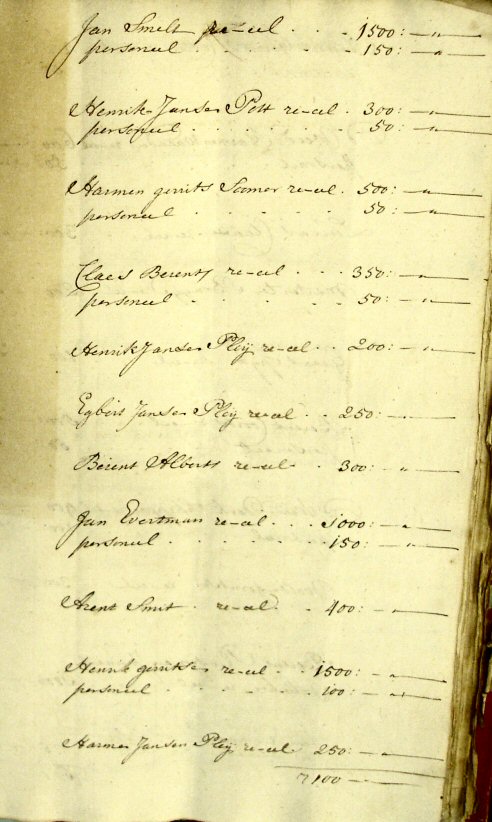 Jan Smelt re-eel . . . 1500:—„—
personeel . . . . . 150:—„—
Henrik Jansen Pott re-eel . 300:—„—
personeel . . . . . . 50:—„—
Harmen gerrits Somer re-eel . 500:—„—
personeel . . . . . . 50:—„—
Claes Berents re-eel . . . 350:—„—
personeel . . . . . . 50:—„—
Henrik Jansen Pleij re-eel . . 200:—„—
Egbert Jansen Pleij re-eel . . 250:—„—
Berent Alberts re-eel . . 300:—„—
Jan Evertman re-eel . . . 1000:—„—
personeel . . . . . . 150:—„—
Arent Smit . re-eel . . 400:—„—
Henrik gerritsen re-eel . 1500:—„—
personeel . . . . . 100:—„—
Harmen Jansen Pleij re-eel . 250:—„—
7100——